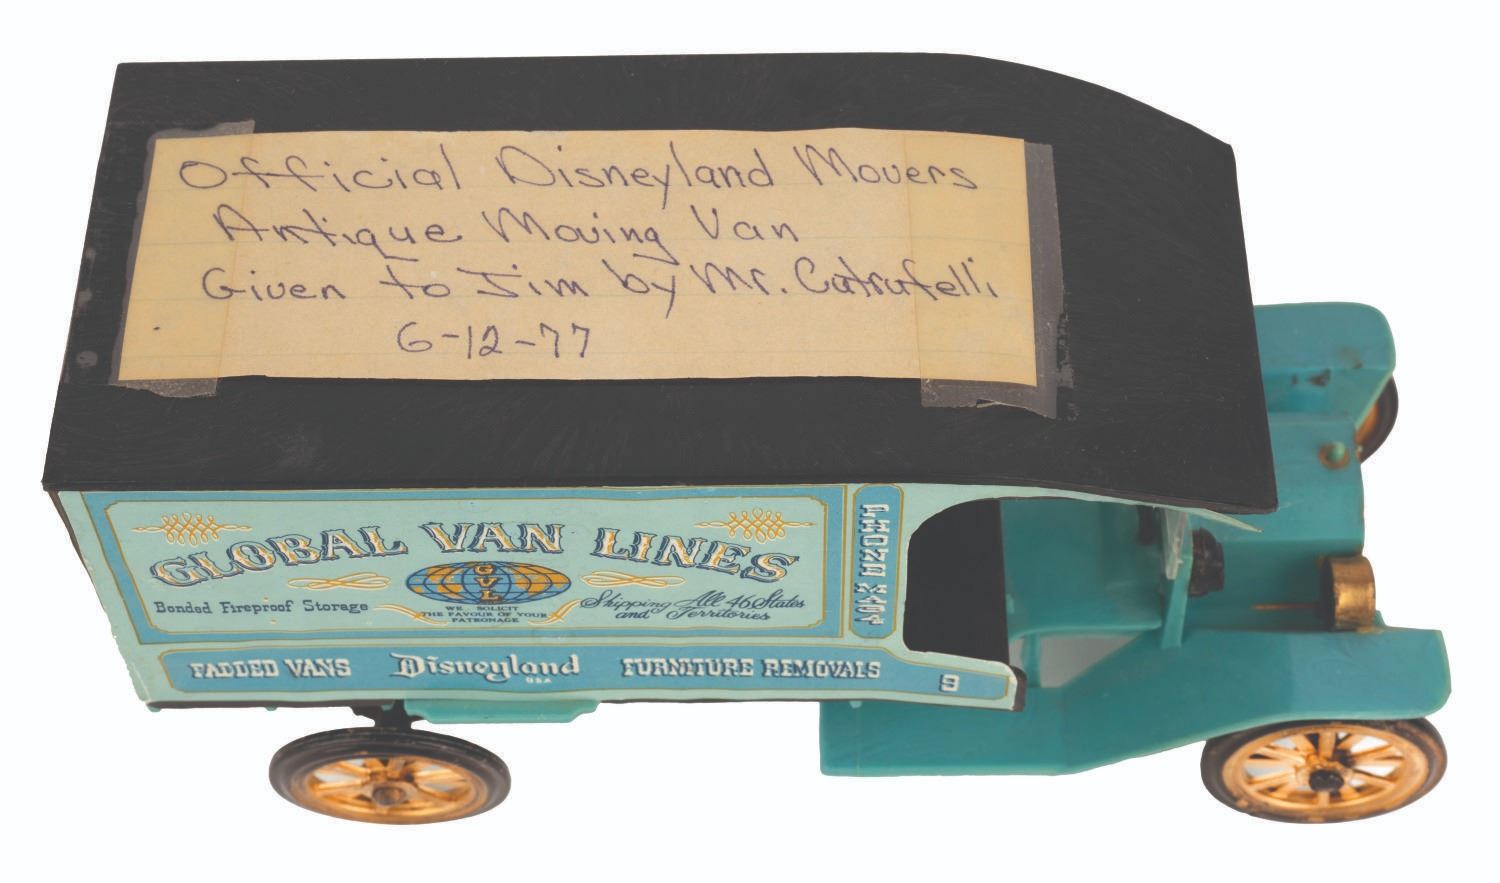 Official Disneyland Movers
Antique Moving Van
Given to Jim by Mr. Cutrufelli
6-12-77
GLOBAL VAN LINES
GVL
Bonded Fireproof Storage
WE SOLICIT
THE FAVOUR OF YOUR
PATRONAGE
Shipping All 46 States
and Territories
PADDED VANS
Disneyland
USA
FURNITURE REMOVALS
9
PHONE